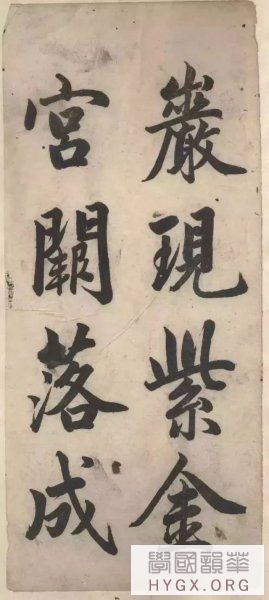 巖現紫金
宮闕落成
華韻國學
HYGX.ORG